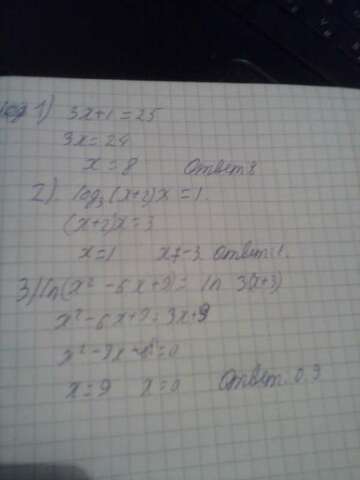 1) 3x+1=25
3x=24
x=8 Ответ 8
2) log₃(x+2)x=1.
(x+2)x=3
x=1 x≠-3 Ответ:1.
3) ln(x²-6x+9)= ln 3(x+3)
x²-6x+9=3x+9
x²-9x=0
x=9 x=0 Ответ: 0.9